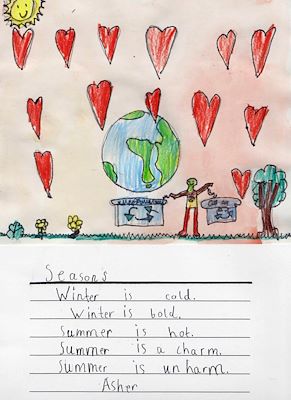 Seasons
Winter is cold.
Winter is bold.
Summer is hot.
Summer is a charm.
Summer is unharm.
Asher